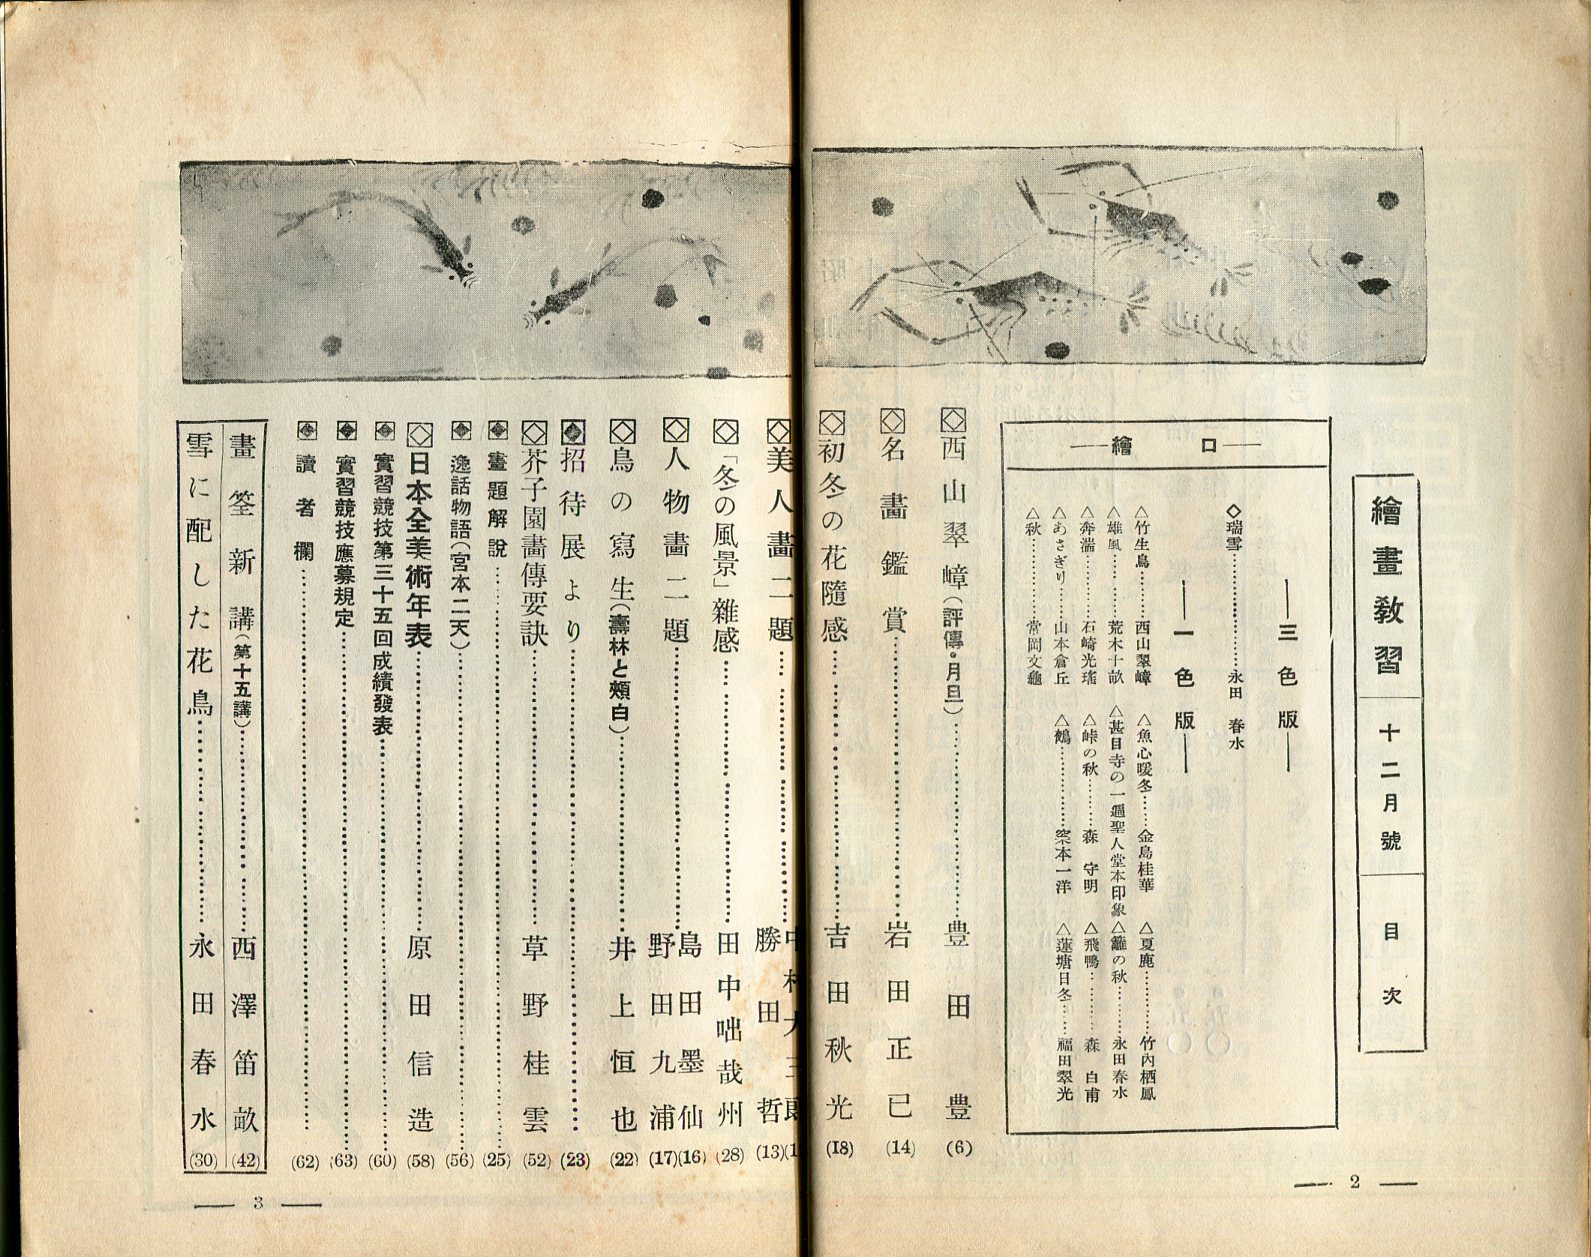 繪畫敎習 十二月號 目次
口繪
三色版
◇瑞雪…………永田春水
一色版
△竹生島……西山翠嶂 △魚心暖冬……金島桂華 △夏鹿…………竹內栖鳳
△雄風……荒木十畝 △甚目寺の一遍聖人堂本印象 △籬の秋……永田春水
△奔湍……石崎光瑤 △峠の秋……森守明 △飛鴨…………森白甫
△あさぎり……山本倉丘 △鶴…………榮本一洋 △蓮塘日冬……福田翠光
△秋…………常岡文龜
西山翠嶂(評傳・月旦)…………豊田豊(6)
名畫鑑賞…………岩田正巳(14)
初冬の花隨感…………吉田秋光(18)
美人畫二題…………中村大三郎 勝田哲(13)
「冬の風景」雜感…………田中咄哉州(28)
人物畫二題…………島田墨仙(16) 野田九浦(17)
鳥の寫生(壽林と頰白)…………井上恒也(22)
招待展より…………(23)
芥子園畫傳要訣…………草野桂雲(52)
畫題解說…………(25)
逸話物語(宮本二天)…………(56)
日本全美術年表…………原田信造(58)
實習競技第三十五回成績發表…………(60)
實習競技應募規定…………(63)
讀者欄…………(62)
畫筌新講(第十五講)…………西澤笛畝(42)
雪に配した花鳥…………永田春水(30)
2
3